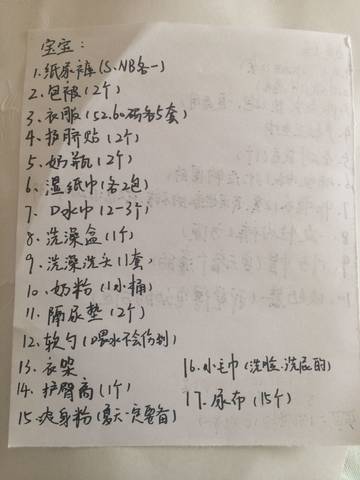 宝宝：
1.纸尿裤(S.NB各一)
2.包被(2个)
3.衣服(52.60码各5套)
4.护脐贴(2个)
5.奶瓶(2个)
6.湿纸巾(各2包)
7.口水巾(2-3个)
8.洗澡盆(1个)
9.洗澡洗头(1套)
10.奶粉(1小桶)
11.隔尿垫(2个)
12.软勺(喂水不会伤到)
13.衣架
14.护臀膏(1个)
15.爽身粉(夏天一定要备)
16.小毛巾(洗脸.洗屁的)
17.尿布(15个)